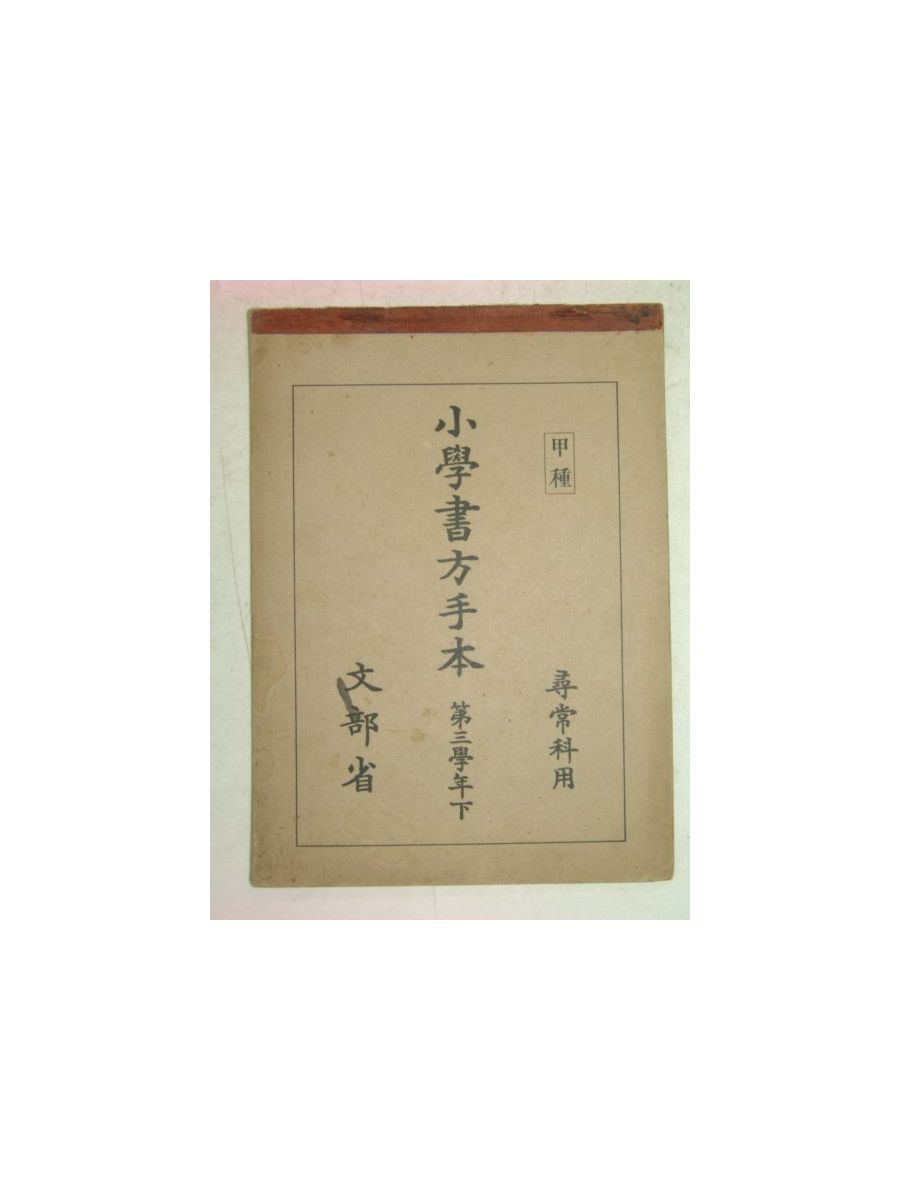 甲種
尋常科用
小學書方手本 第三學年下
文部省